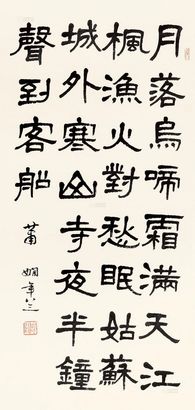 月落烏啼霜滿天江
楓漁火對愁眠姑蘇
城外寒山寺夜半鐘
聲到客船
蕭嫻年